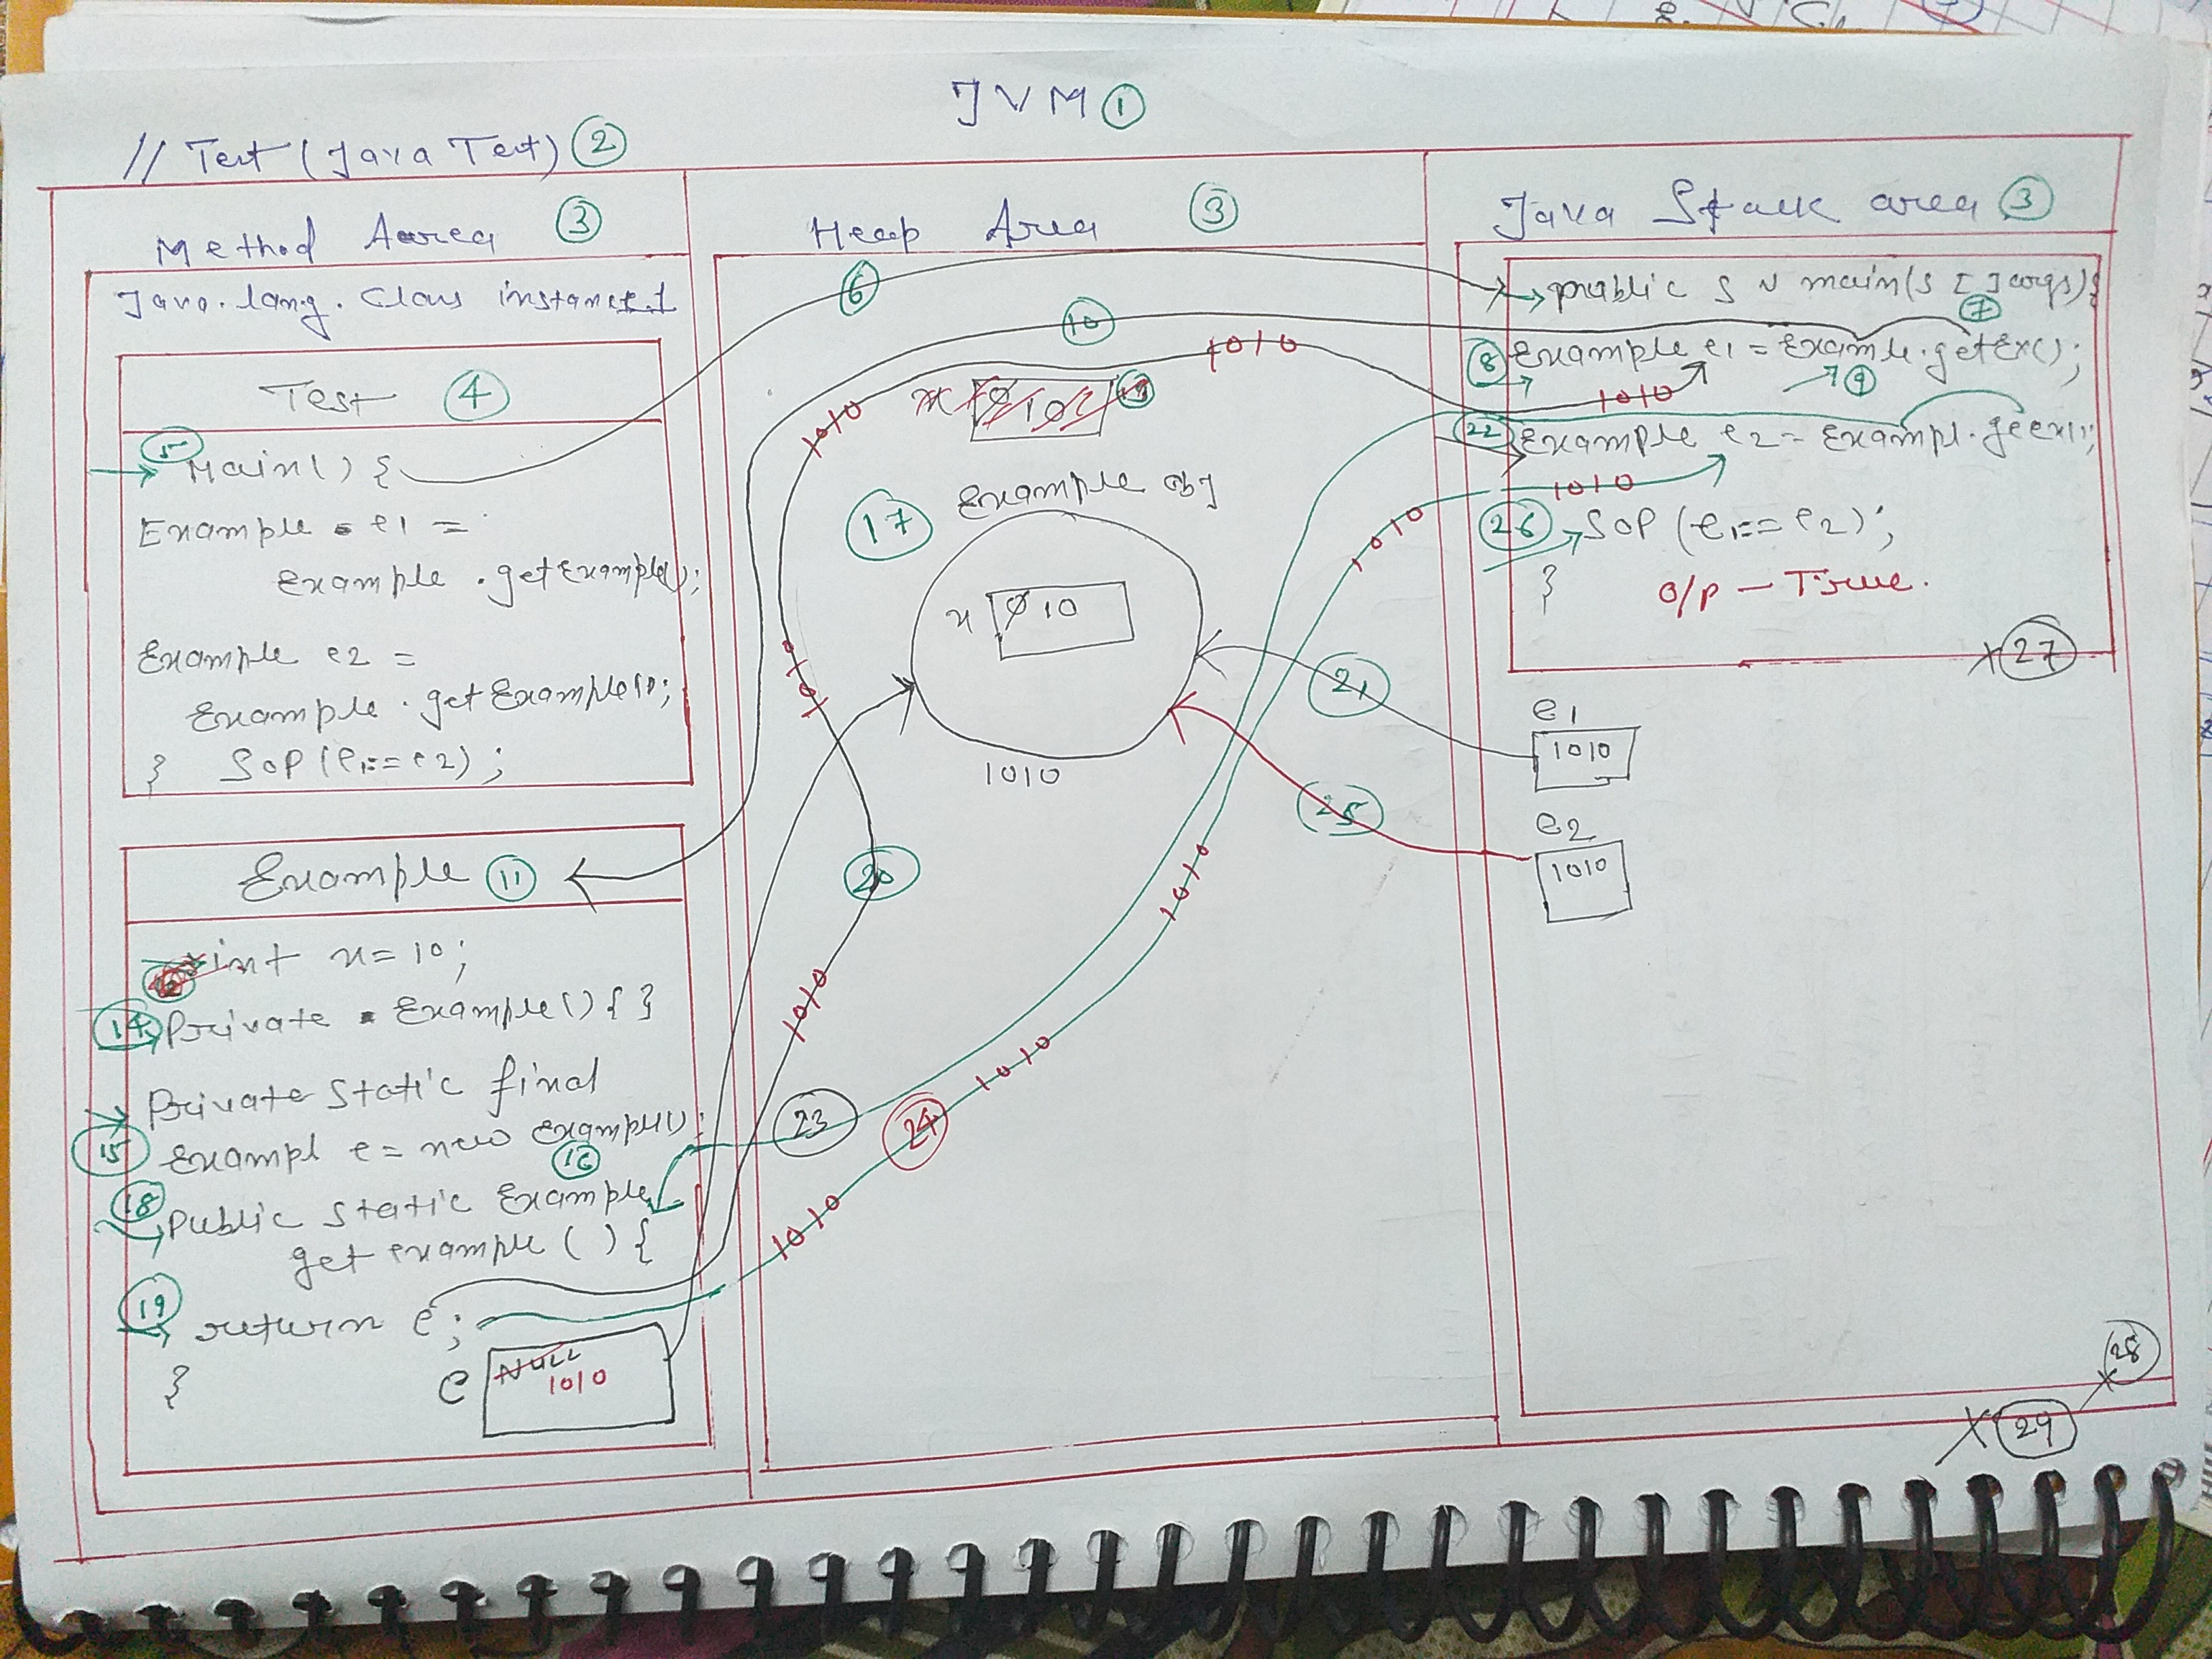 JVM ①
// Test (Java Test) ②
Method Area ③
Java.lang.Class instance
Test ④
⑤ Main() {
Example e1 =
Example.getExample();
Example e2 =
Example.getExample();
Sop(e1==e2);
}
Example ⑪
int x=10;
⑭ Private Example() { }
⑮ Private static final
Example e = new Example();
⑯
⑱ Public static Example
get example () {
⑲ return e;
}
e
NULL
1010
Heap Area ③
⑥
⑩
x 0 10
⑬
⑰ Example obj
x 0 10
1010
1010
1010
1010
1010
⑳
㉓
1010
㉔
1010
1010
1010
㉑
㉕
Java Stack area ③
public S V main(S[] args){
⑦
⑧ Example e1 = Example.getEx();
⑨
1010
㉒ Example e2 = Exampl.geex();
1010
㉖ Sop(e1==e2);
}
O/P — True.
㉗
e1
1010
e2
1010
㉘
㉙